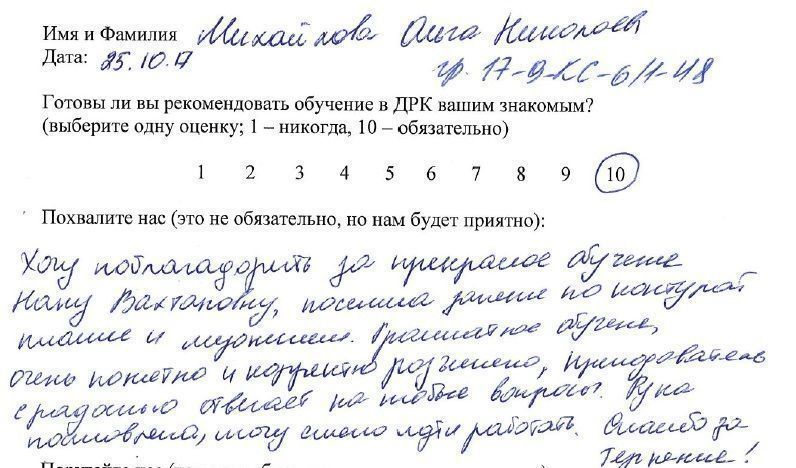 Имя и Фамилия Михайлова Ольга Николаев
Дата: 25.10.17 гр. 17-9-КС-6/1-48
Готовы ли вы рекомендовать обучение в ДРК вашим знакомым?
(выберите одну оценку; 1 – никогда, 10 – обязательно)
1 2 3 4 5 6 7 8 9 10
Похвалите нас (это не обязательно, но нам будет приятно):
Хочу поблагадорить за прекрасное обучение
Нану Вахтановну, посетила занятие по контурной
пластике и мезонитям. Грамматное обучение,
очень понятно и корректно разъяснено, преподователь
с радостью отвечает на любые вопросы. Рука
поставлена, могу смело идти работать. Спасибо за
терпение!